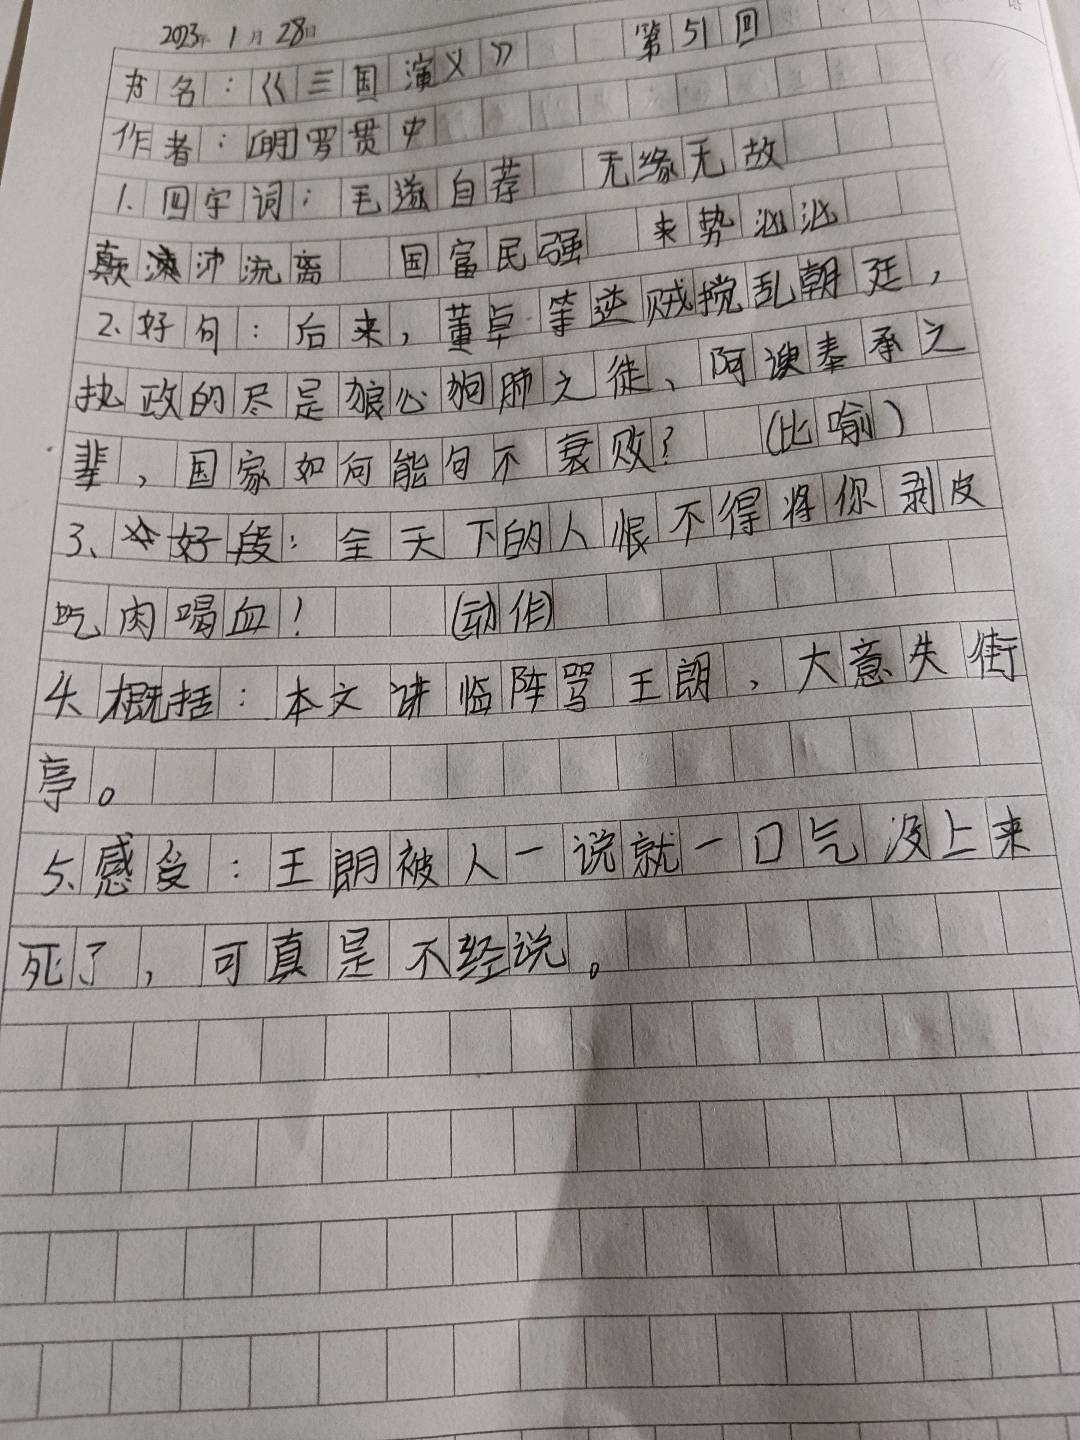 2023年1月28日
书名：《三国演义》 第51回
作者：[明]罗贯中
1. 四字词：毛遂自荐 无缘无故
颠沛流离 国富民强 来势汹汹
2、好句：后来，董卓等逆贼搅乱朝廷，
执政的尽是狼心狗肺之徒、阿谀奉承之
辈，国家如何能句不衰败？ (比喻)
3、好段：全天下的人恨不得将你剥皮
吃肉喝血！ (动作)
4、概括：本文讲临阵骂王朗，大意失街
亭。
5、感受：王朗被人一说就一口气没上来
死了，可真是不经说。